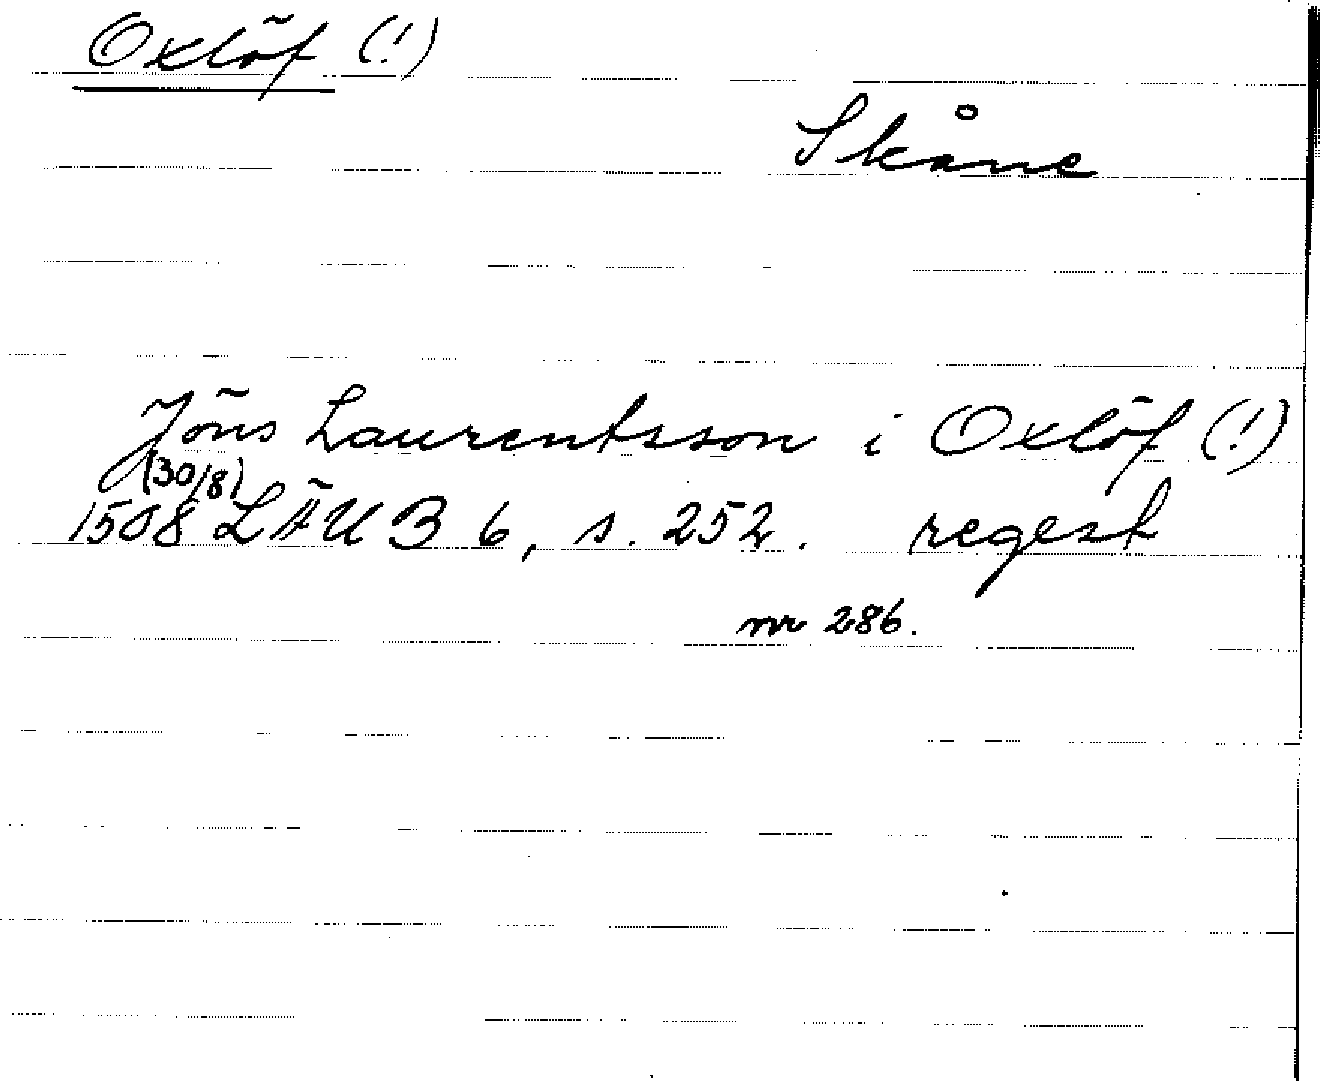 Oxlöf (!)
Skåne
Jöns Laurentsson i Oxlöf (!)
(30/8)
1508 LÄUB 6, s. 252. regest
nr 286.